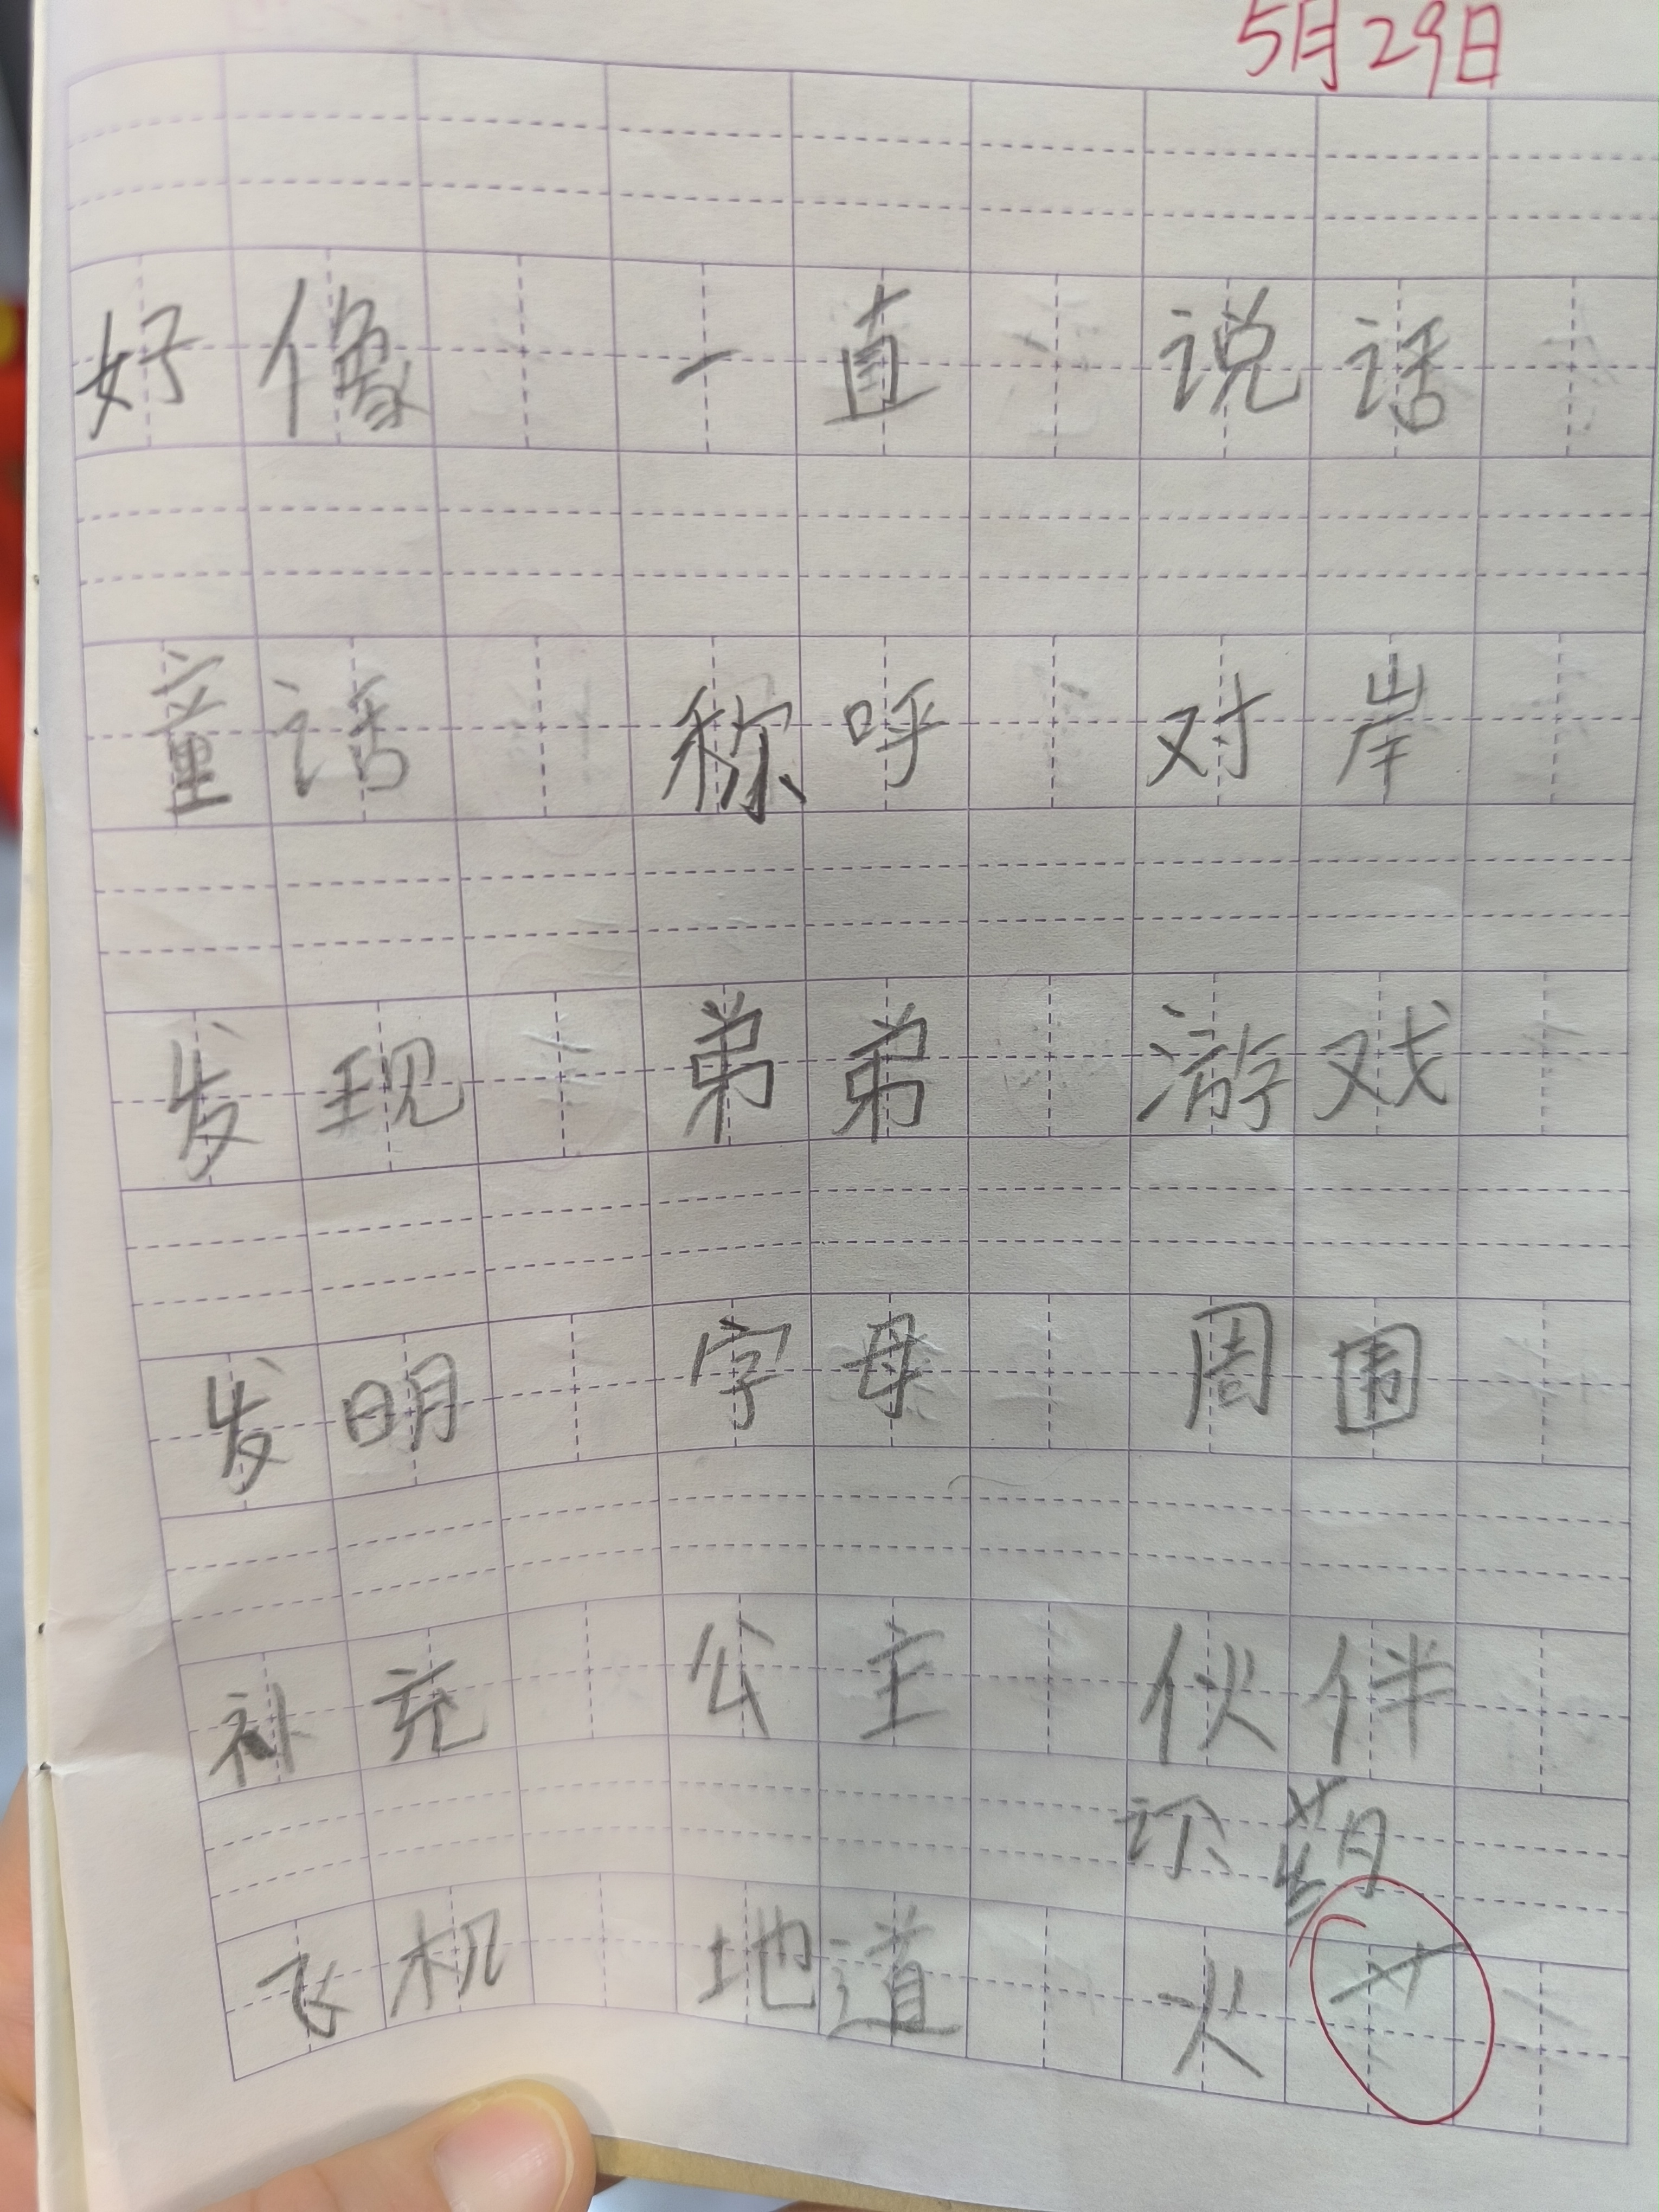 5月29日
好像 一直 说话
童话 称呼 对岸
发现 弟弟 游戏
发明 字母 周围
补充 公主 伙伴
飞机 地道 火